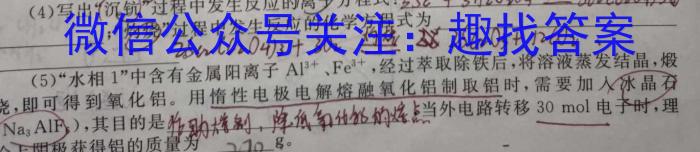 (4)写出“沉钪”过程中发生反应的离子方程式:
过程中发生反应的化学方程式为
微信公众号关注:趣找答案
(5)“水相1”中含有金属阳离子 Al³⁺、Fe³⁺,经过萃取除铁后,将溶液蒸发结晶,煅
烧,即可得到氧化铝。用惰性电极电解熔融氧化铝制取铝时,需要加入水晶石
Na₃AlF₆),其目的是作助熔剂,降低氧化铝的熔点当外电路转移 30 mol 电子时,理
论上阴极获得铝的质量为 270 g。